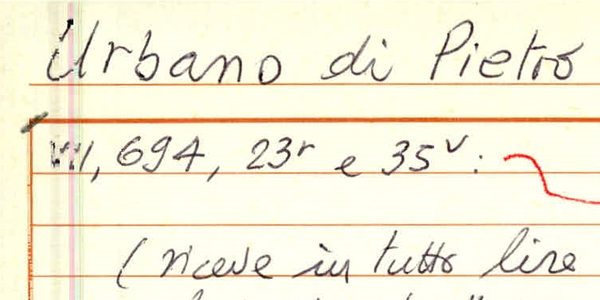 Urbano di Pietro
VII, 694, 23r e 35v:
(riceve in tutto lire